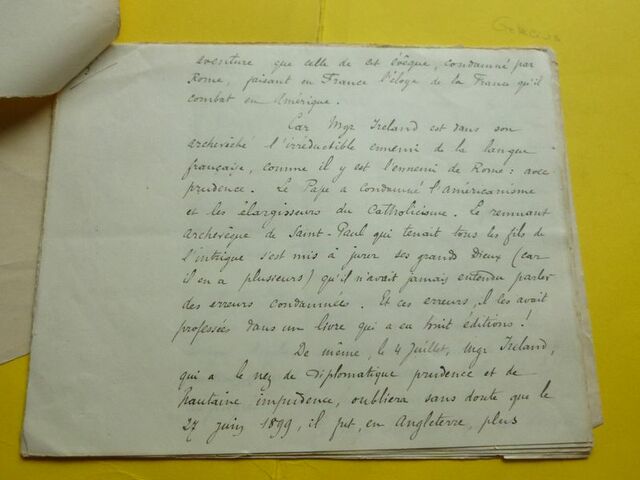 aventure que celle de cet évêque, condamné par
Rome, faisant en France l'éloge de la France qu'il
combat en Amérique.
Car Mgr Ireland est dans son
archevêché l'irréductible ennemi de la langue
française, comme il y est l'ennemi de Rome : avec
prudence. Le Pape a condamné l'américanisme
et les élargisseurs du Catholicisme. Le remuant
archevêque de Saint-Paul qui tenait tous les fils de
l'intrigue s'est mis à jurer ses grand Dieux (car
il en a plusieurs) qu'il n'avait jamais entendu parler
des erreurs condamnées. Et ces erreurs, il les avait
professées dans un livre qui a eu huit éditions !
De même, le 4 Juillet, Mgr Ireland,
qui a le nez de diplomatique prudence et de
hautaine impudence, oubliera sans doute que le
27 juin 1899, il fut, en Angleterre, plus